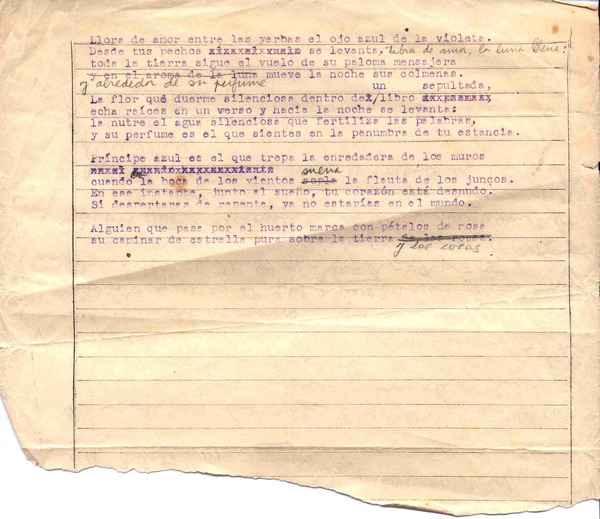 Llora de amor entre las yerbas el ojo azul de la violeta.
Desde tus pechos se levanta, tibia de amor, la luna llena:
toda la tierra sigue el vuelo de su paloma mensajera
y en el aroma de la luna mueve la noche sus colmenas.
y alrededor de su perfume
un sepultada,
La flor que duerme silenciosa dentro de libro
echa raíces en un verso y hacia la noche se levanta:
la nutre el agua silenciosa que fertiliza las palabras,
y su perfume es el que sientes en la penumbra de tu estancia.
Príncipe azul es el que trepa la enredadera de los muros
suena
cuando la boca de los vientos sopla la flauta de los juncos.
En ese instante, junto al sueño, tu corazón está desnudo.
Si despertaras de repente, ya no estarías en el mundo.
Alguien que pasa por el huerto marca con pétalos de rosa
su caminar de estrella pura sobre la tierra
y las cosas